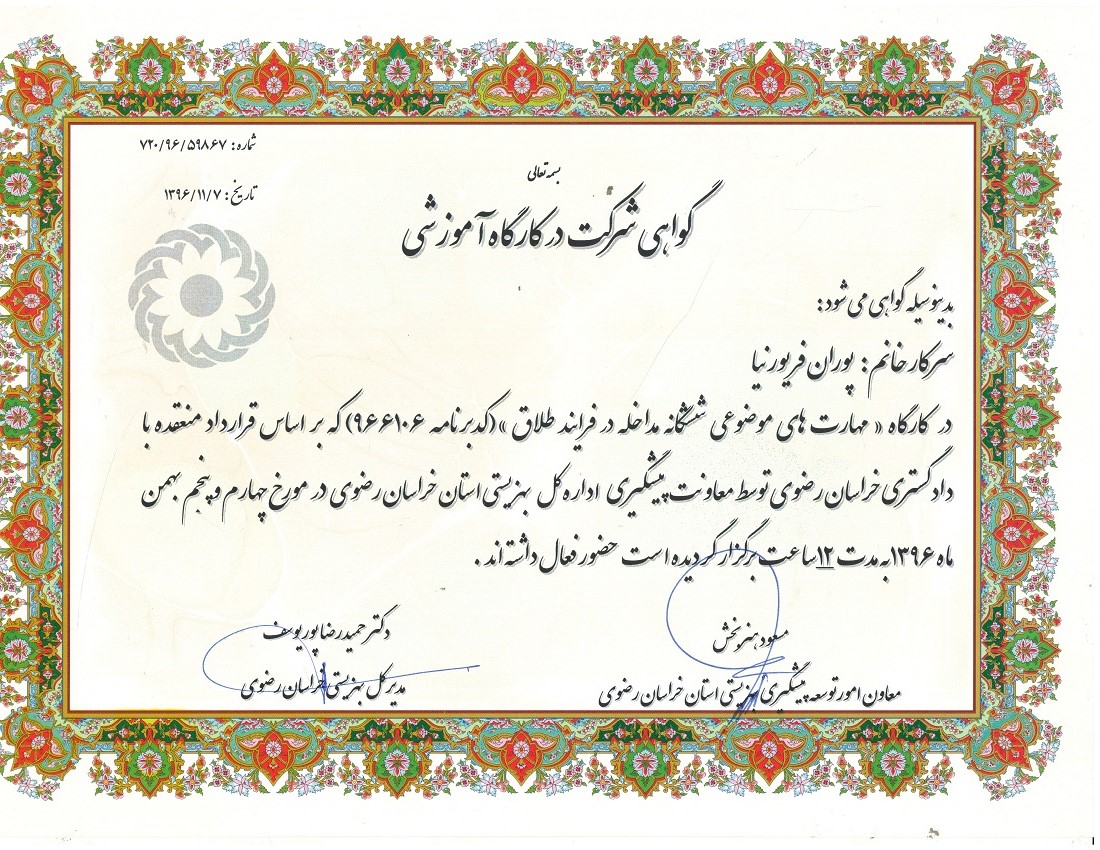 شماره: ۷۲۰/۹۶/۵۹۸۶۷
بسمه تعالی
تاریخ: ۱۳۹۶/۱۱/۷
گواهی شرکت در کارگاه آموزشی
بدینوسیله گواهی می شود:
سرکار خانم: پوران فریور نیا
در کارگاه « مهارت های موضوعی ششگانه مداخله در فرایند طلاق »(کدبرنامه ۹۶۶۱۰۶) که بر اساس قرارداد منعقده با
دادگستری خراسان رضوی توسط معاونت پیشگیری اداره کل بهزیستی استان خراسان رضوی در مورخ چهارم و پنجم بهمن
ماه ۱۳۹۶به مدت ۱۲ساعت برگزار گردیده است حضور فعال داشته اند .
مسعود هنربخش
معاون امور توسعه پیشگیری بهزیستی استان خراسان رضوی
دکتر حمیدرضا پور یوسف
مدیر کل بهزیستی خراسان رضوی